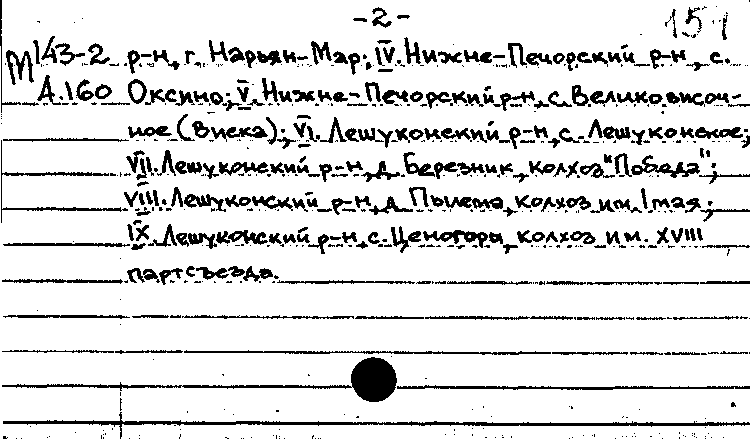 -2- 151
М143-2 р-н, г. Нарьян-Мар; IV. Нижне-Печорский р-н, с.
А.160 Оксино; V. Нижне-Печорский р-н, с. Великовисоч-
ное (Виска); VI. Лешуконский р-н, с. Лешуконское;
VII. Лешуконский р-н, д. Березник, колхоз "Победа";
VIII. Лешуконский р-н, д. Пылема, колхоз им. 1 мая;
IX. Лешуконский р-н, с. Ценогоры, колхоз им. XVIII
партсъезда.